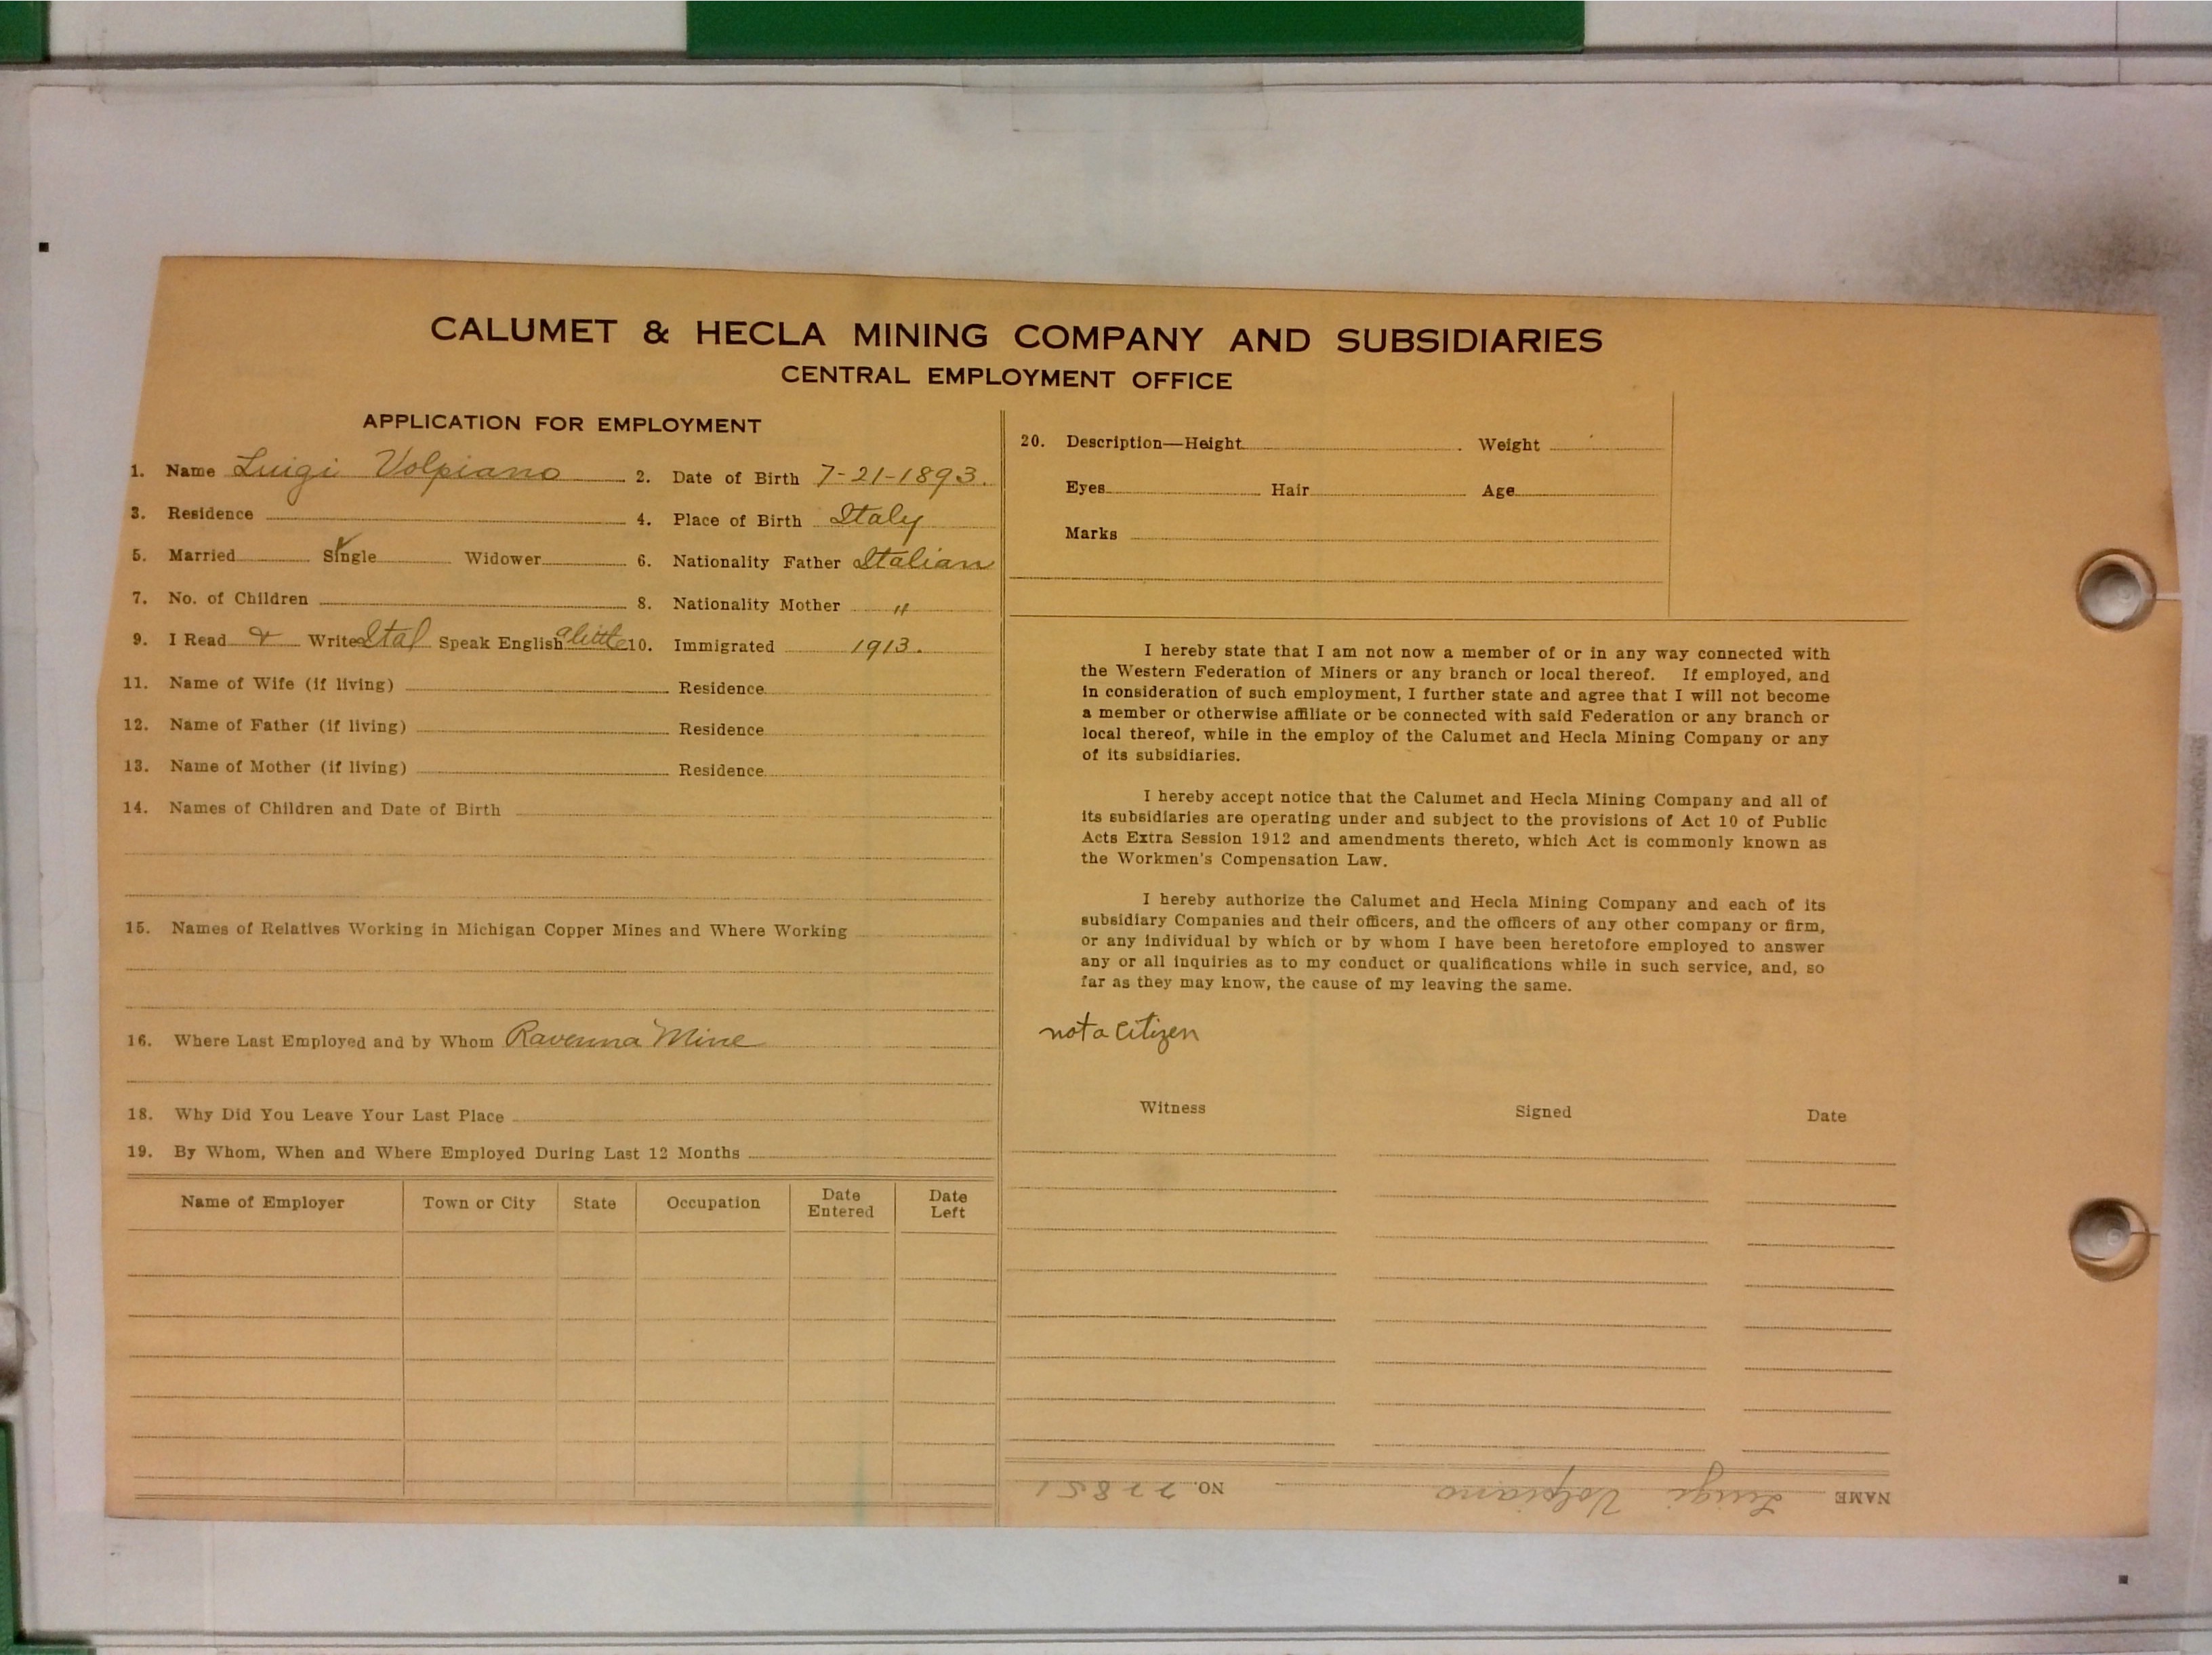 CALUMET & HECLA MINING COMPANY AND SUBSIDIARIES
CENTRAL EMPLOYMENT OFFICE
APPLICATION FOR EMPLOYMENT
1. Name Luigi Volpiano 2. Date of Birth 7-21-1893.
3. Residence 4. Place of Birth Italy
5. Married Single Widower 6. Nationality Father Italian
7. No. of Children 8. Nationality Mother "
9. I Read & Write Ital Speak English a little 10. Immigrated 1913.
11. Name of Wife (if living) Residence
12. Name of Father (if living) Residence
13. Name of Mother (if living) Residence
14. Names of Children and Date of Birth
15. Names of Relatives Working in Michigan Copper Mines and Where Working
16. Where Last Employed and by Whom Ravenna Mine
18. Why Did You Leave Your Last Place
19. By Whom, When and Where Employed During Last 12 Months
Name of Employer Town or City State Occupation Date Entered Date Left
20. Description—Height Weight
Eyes Hair Age
Marks
I hereby state that I am not now a member of or in any way connected with
the Western Federation of Miners or any branch or local thereof. If employed, and
in consideration of such employment, I further state and agree that I will not become
a member or otherwise affiliate or be connected with said Federation or any branch or
local thereof, while in the employ of the Calumet and Hecla Mining Company or any
of its subsidiaries.
I hereby accept notice that the Calumet and Hecla Mining Company and all of
its subsidiaries are operating under and subject to the provisions of Act 10 of Public
Acts Extra Session 1912 and amendments thereto, which Act is commonly known as
the Workmen's Compensation Law.
I hereby authorize the Calumet and Hecla Mining Company and each of its
subsidiary Companies and their officers, and the officers of any other company or firm,
or any individual by which or by whom I have been heretofore employed to answer
any or all inquiries as to my conduct or qualifications while in such service, and, so
far as they may know, the cause of my leaving the same.
not a Citizen
Witness Signed Date
NAME Luigi Volpiano NO. 22851